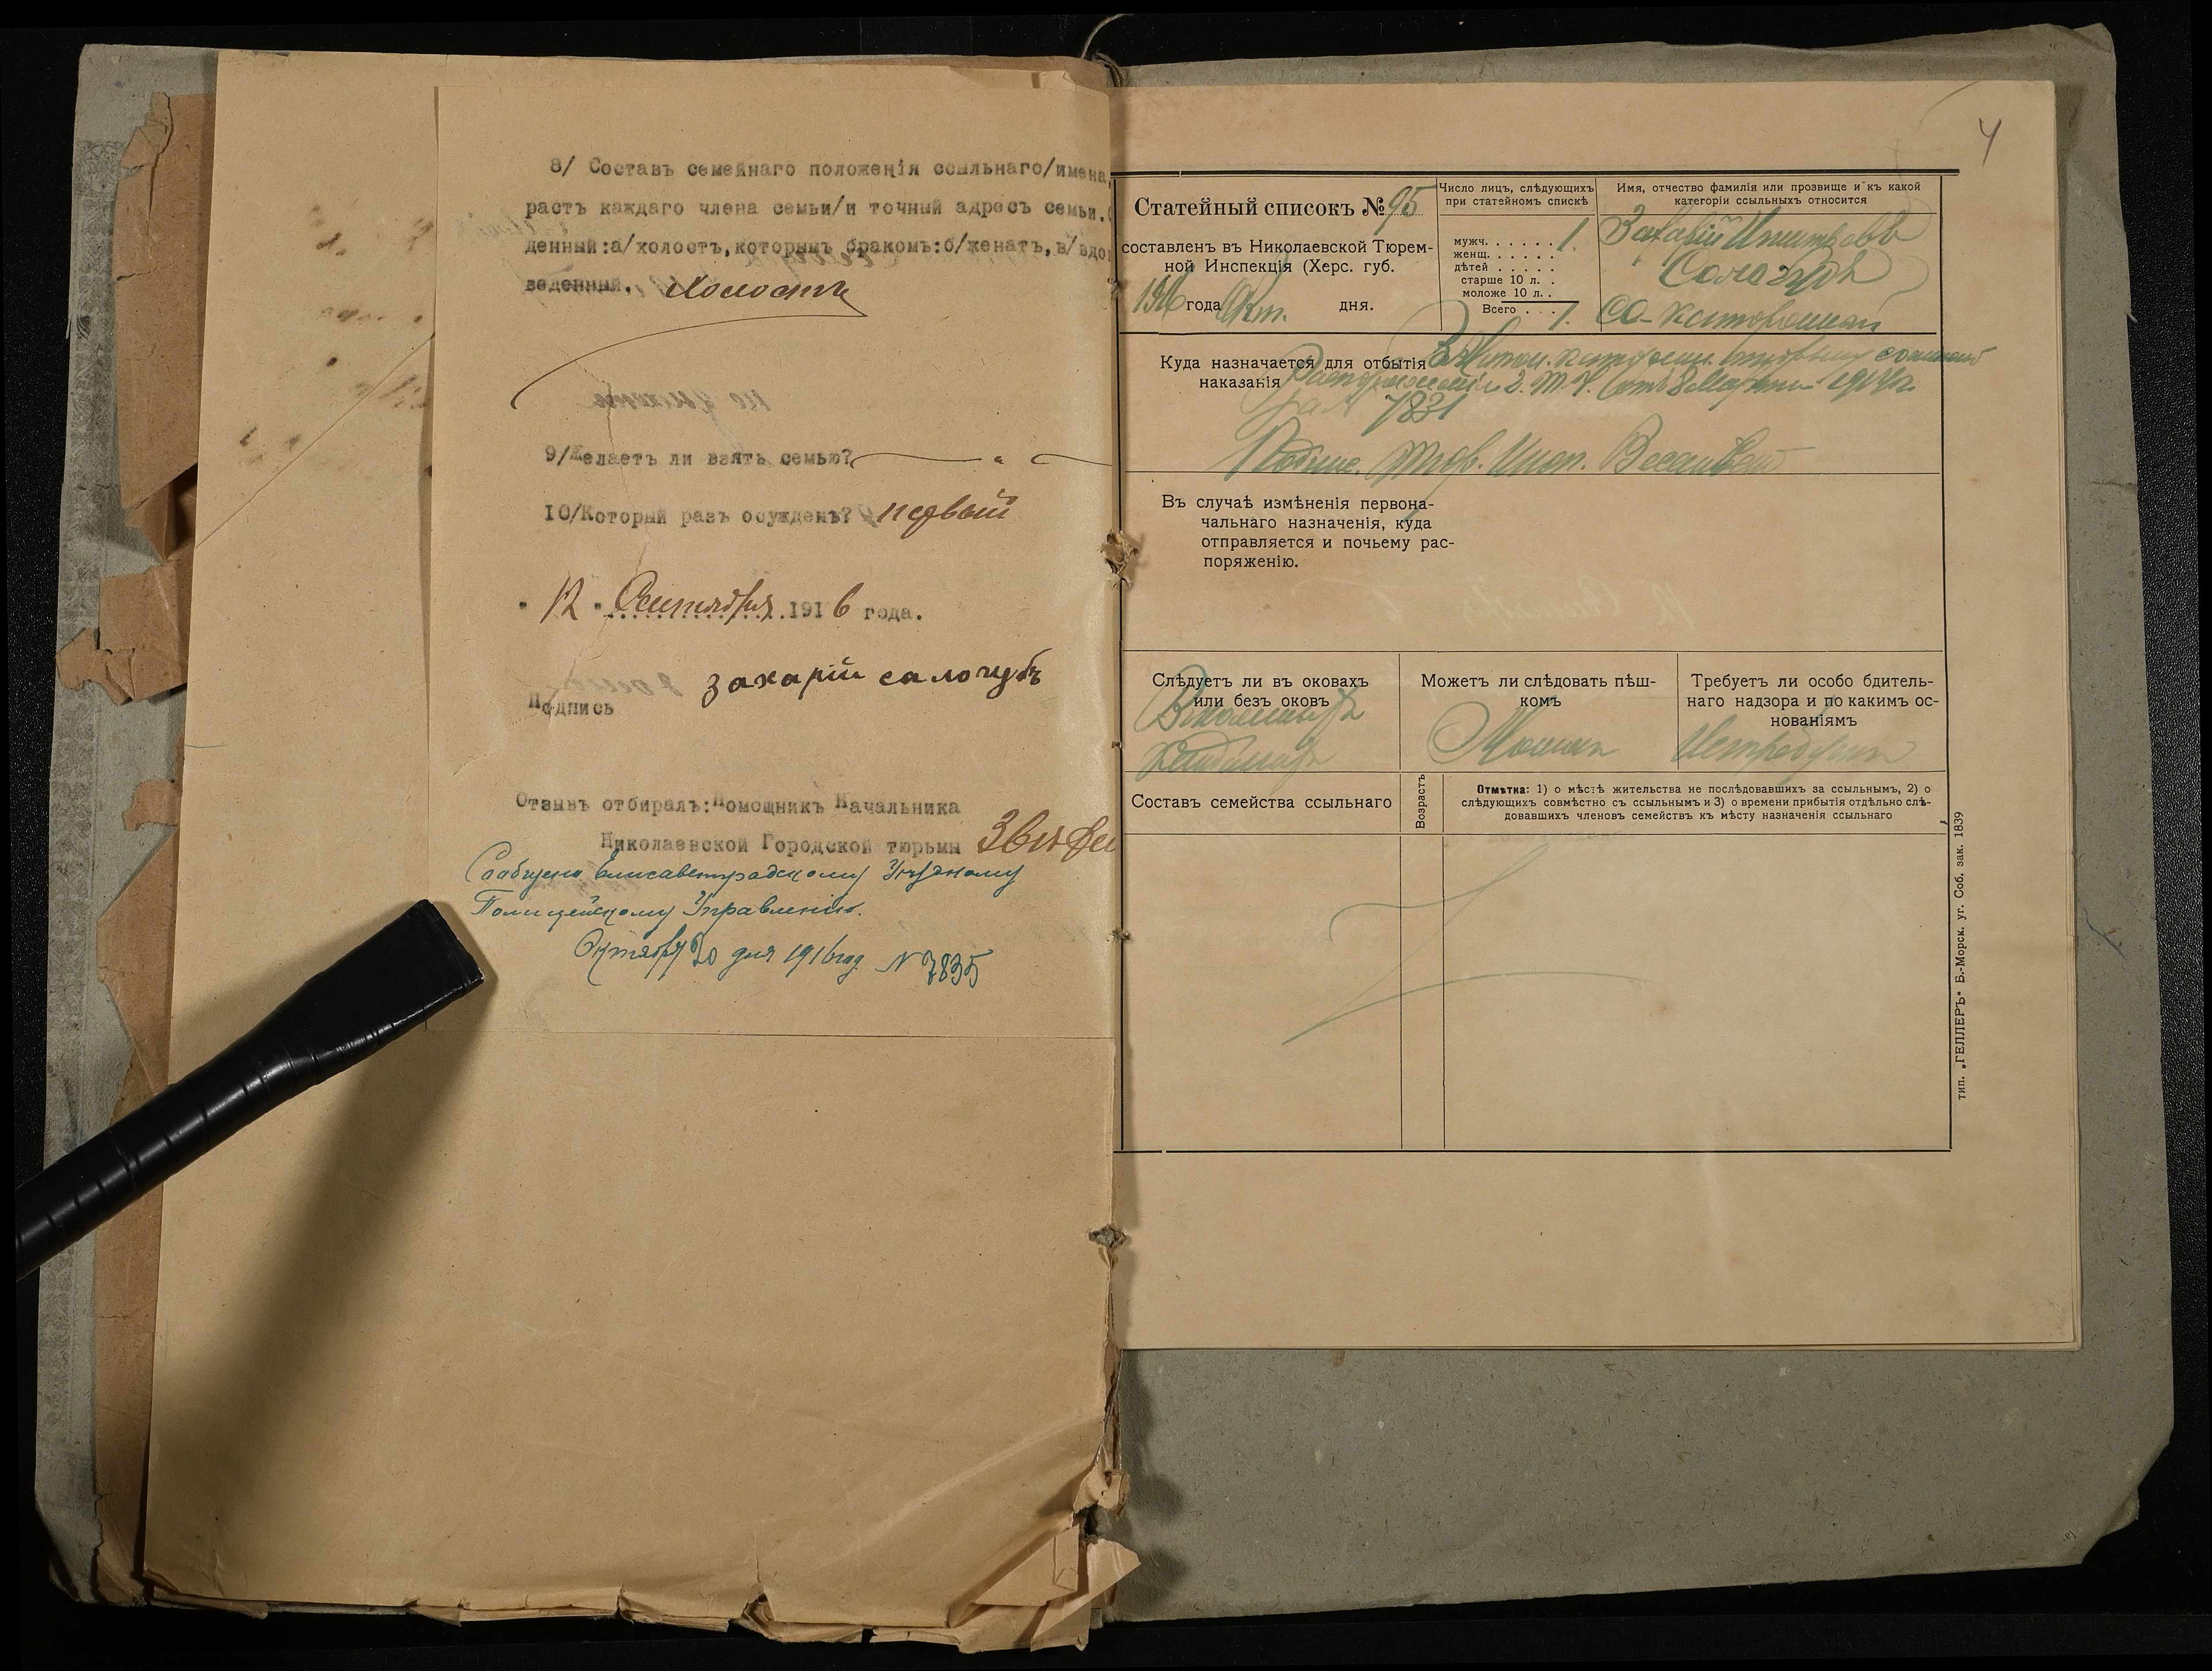 8/ Составъ семейнаго положенія ссыльнаго/имена,
растъ каждаго члена семьи/и точный адресъ семьи.
денный:а/холостъ,которымъ бракомъ:б/женатъ,в/вдо
веденный. Холостъ
9/Желаетъ ли взять семью?
10/Который разъ осужденъ? первый
" 12 " Сентября 1916 года.
захарій салогубъ
Подпись
Отзывъ отбиралъ:Помощникъ Начальника
Николаевской Городской тюрьмы
Сообщено Елисаветградскому Уѣздному
Полицейскому Управленію.
Октября 20 дня 1916 год. N 7835
4
Статейный списокъ № 95
составленъ въ Николаевской Тюрем-
ной Инспекція (Херс. губ.
1916 года Окт. дня.
Число лицъ, слѣдующихъ
при статейномъ спискѣ
мужч. . . . . . . 1.
женщ. . . . . . .
дѣтей . . . . .
старше 10 л. .
моложе 10 л. .
Всего . . . 1.
Имя, отчество фамилія или прозвище и къ какой
категоріи ссыльныхъ относится
Захарій
Салогубъ
СО-каторжный
Куда назначается для отбытія
наказанія
за № 7831
Тюр. Инсп.
Въ случаѣ измѣненія первона-
чальнаго назначенія, куда
отправляется и почьему рас-
поряженію.
Слѣдуетъ ли въ оковахъ
или безъ оковъ
Въ кандалахъ
Можетъ ли слѣдовать пѣш-
комъ
Можетъ
Требуетъ ли особо бдитель-
наго надзора и по какимъ ос-
нованіямъ
Не требуетъ
Составъ семейства ссыльнаго
Возрастъ
Отмѣтка: 1) о мѣстѣ жительства не послѣдовавшихъ за ссыльнымъ, 2) о
слѣдующихъ совмѣстно съ ссыльнымъ и 3) о времени прибытія отдѣльно слѣ-
довавшихъ членовъ семействъ къ мѣсту назначенія ссыльнаго
тип. „ГЕЛЛЕРЪ" Б.-Морск. уг. Соб. зак. 1839